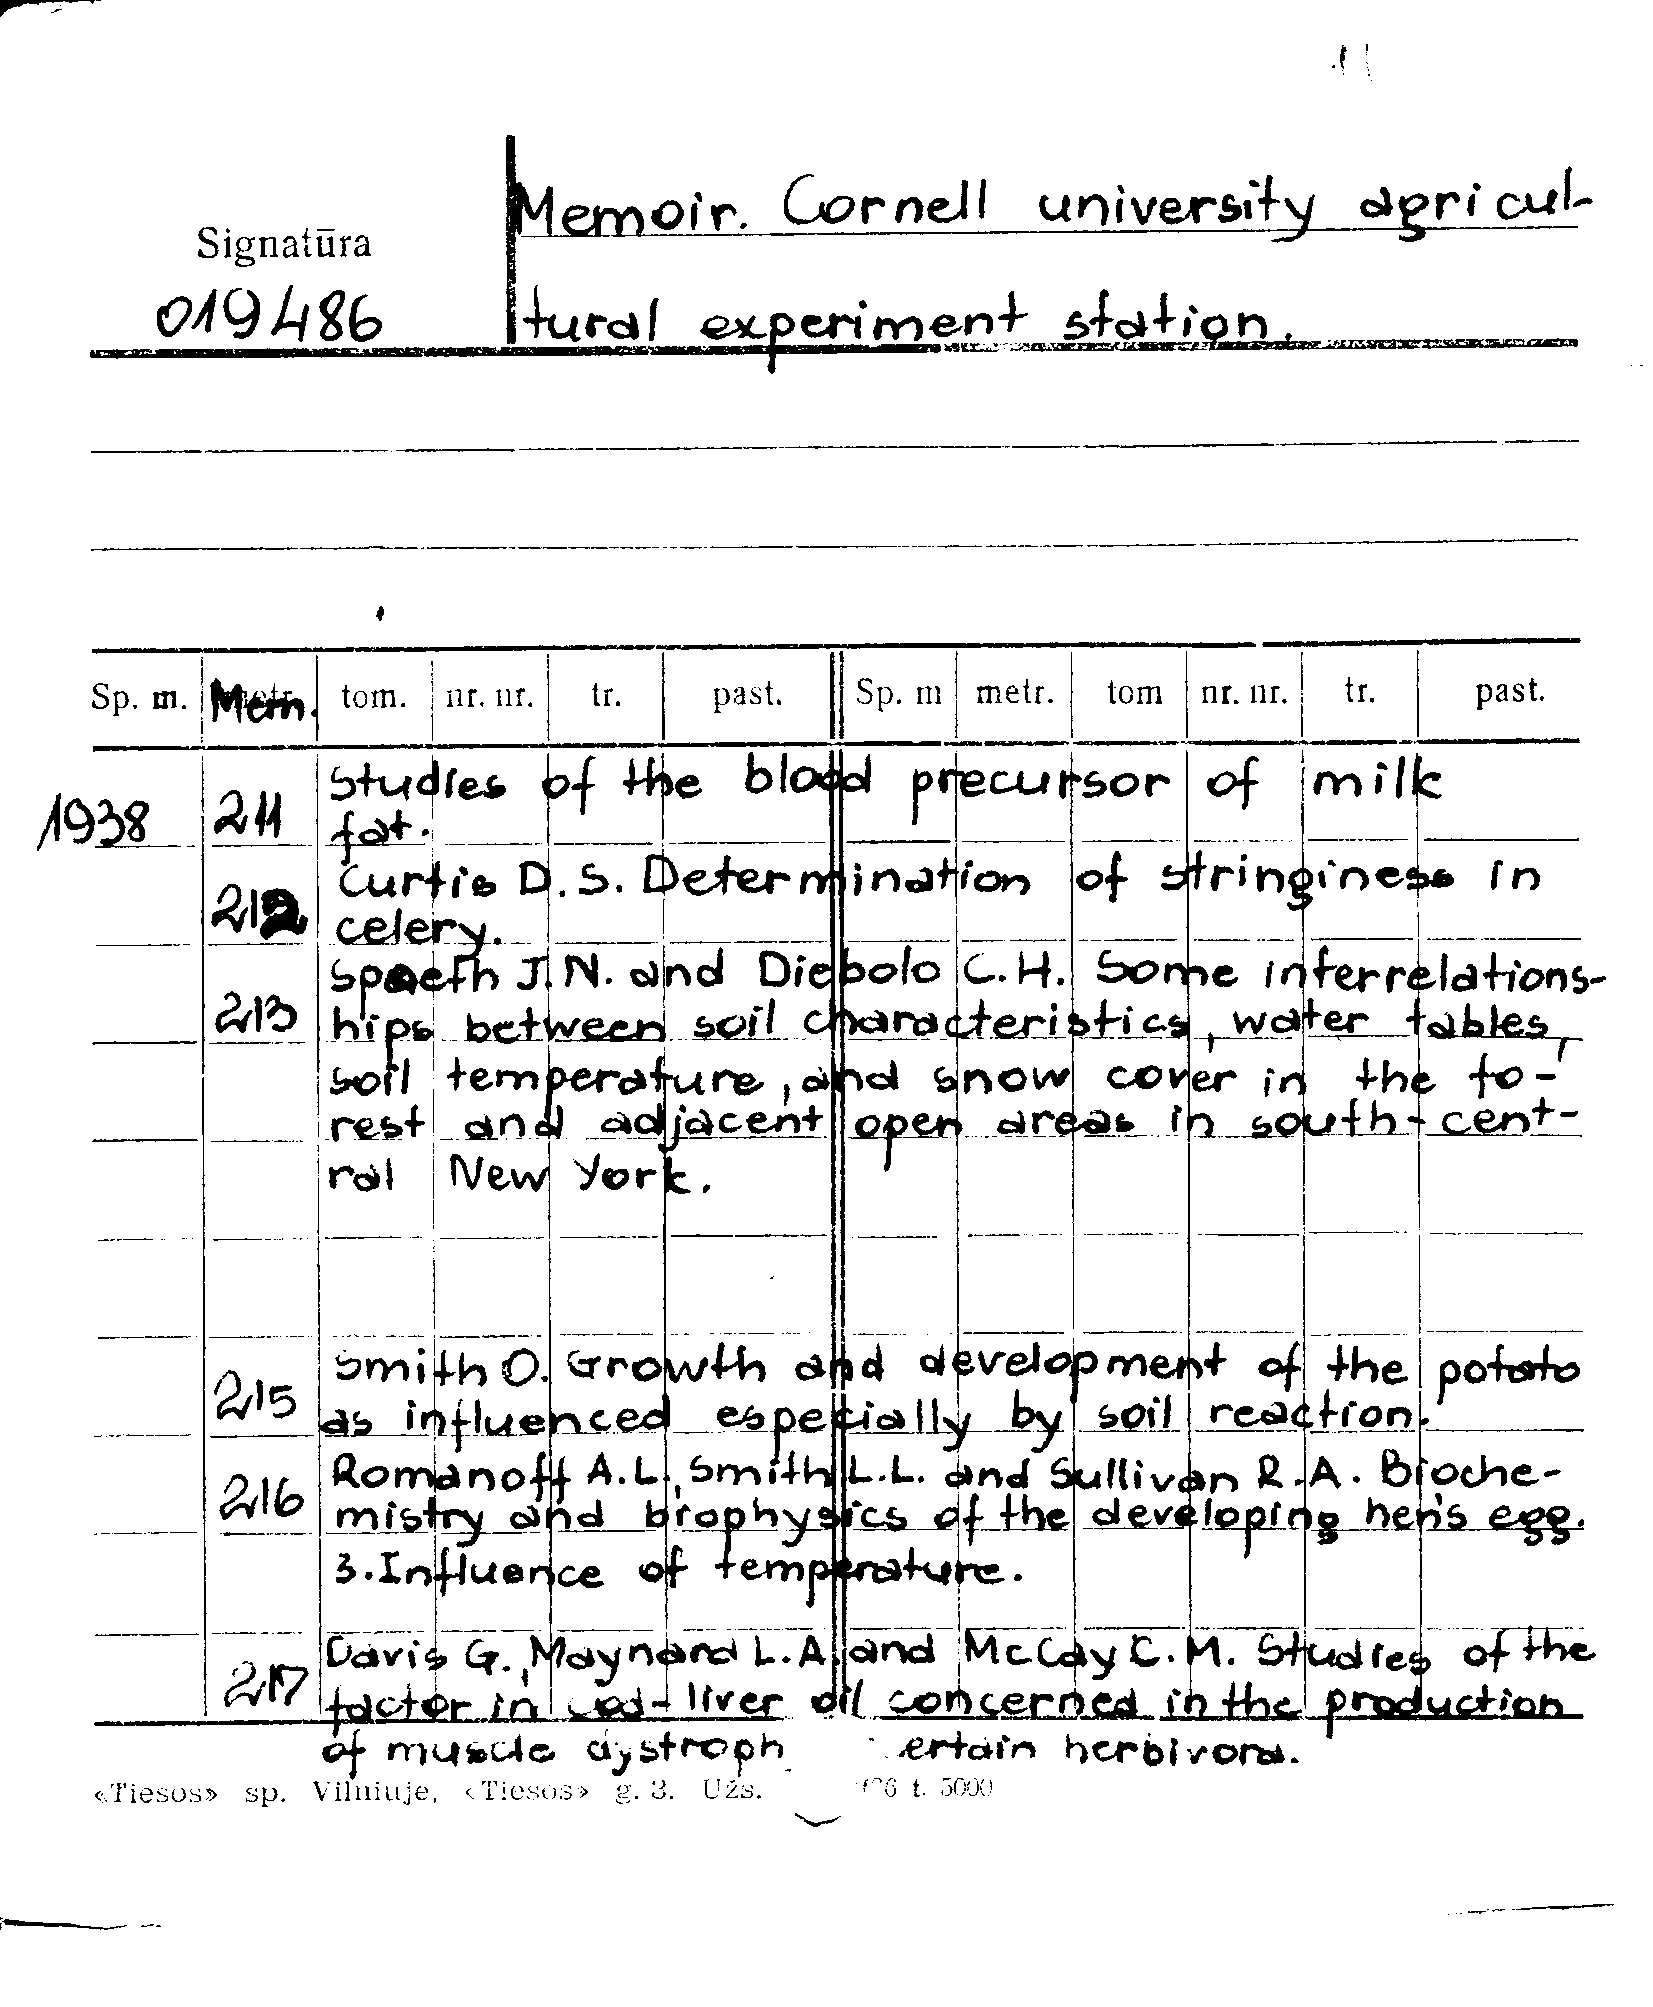 Memoir. Cornell university agricul-
Signatūra
019486
tural experiment station.
Sp. m. Mem. tom. nr. nr. tr. past. Sp. m metr. tom nr. nr. tr. past.
1938 211 Studies of the blood precursor of milk
fat.
212 Curtis D.S. Determination of stringiness in
celery.
213 Spaeth J.N. and Diebolo C.H. Some interrelations-
hips between soil characteristics, water tables,
soil temperature, and snow cover in the fo-
rest and adjacent open areas in south-cent-
ral New York.
215 Smith O. Growth and development of the potato
as influenced especially by soil reaction.
216 Romanoff A.L., Smith L.L. and Sullivan R.A. Bioche-
mistry and biophysics of the developing hen's egg.
3. Influence of temperature.
217 Davis G., Maynard L.A. and McCay C.M. Studies of the
factor in cod-liver oil concerned in the production
of muscle dystroph ertain herbivora.
«Tiesos» sp. Vilniuje, «Tiesos» g. 3. Užs. t. 5000